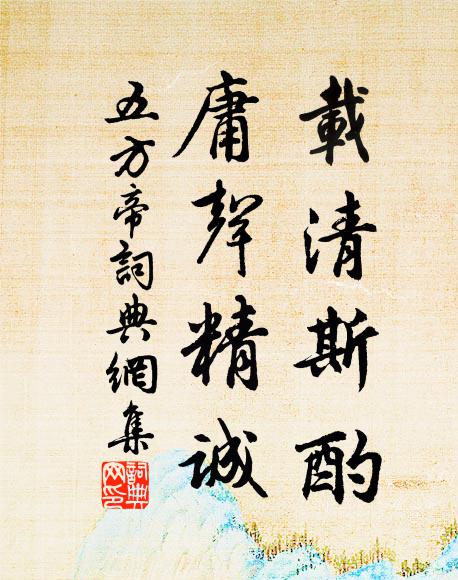 載清斯酌
庸聲精誠
五方帝詞典網集
詞典
网印